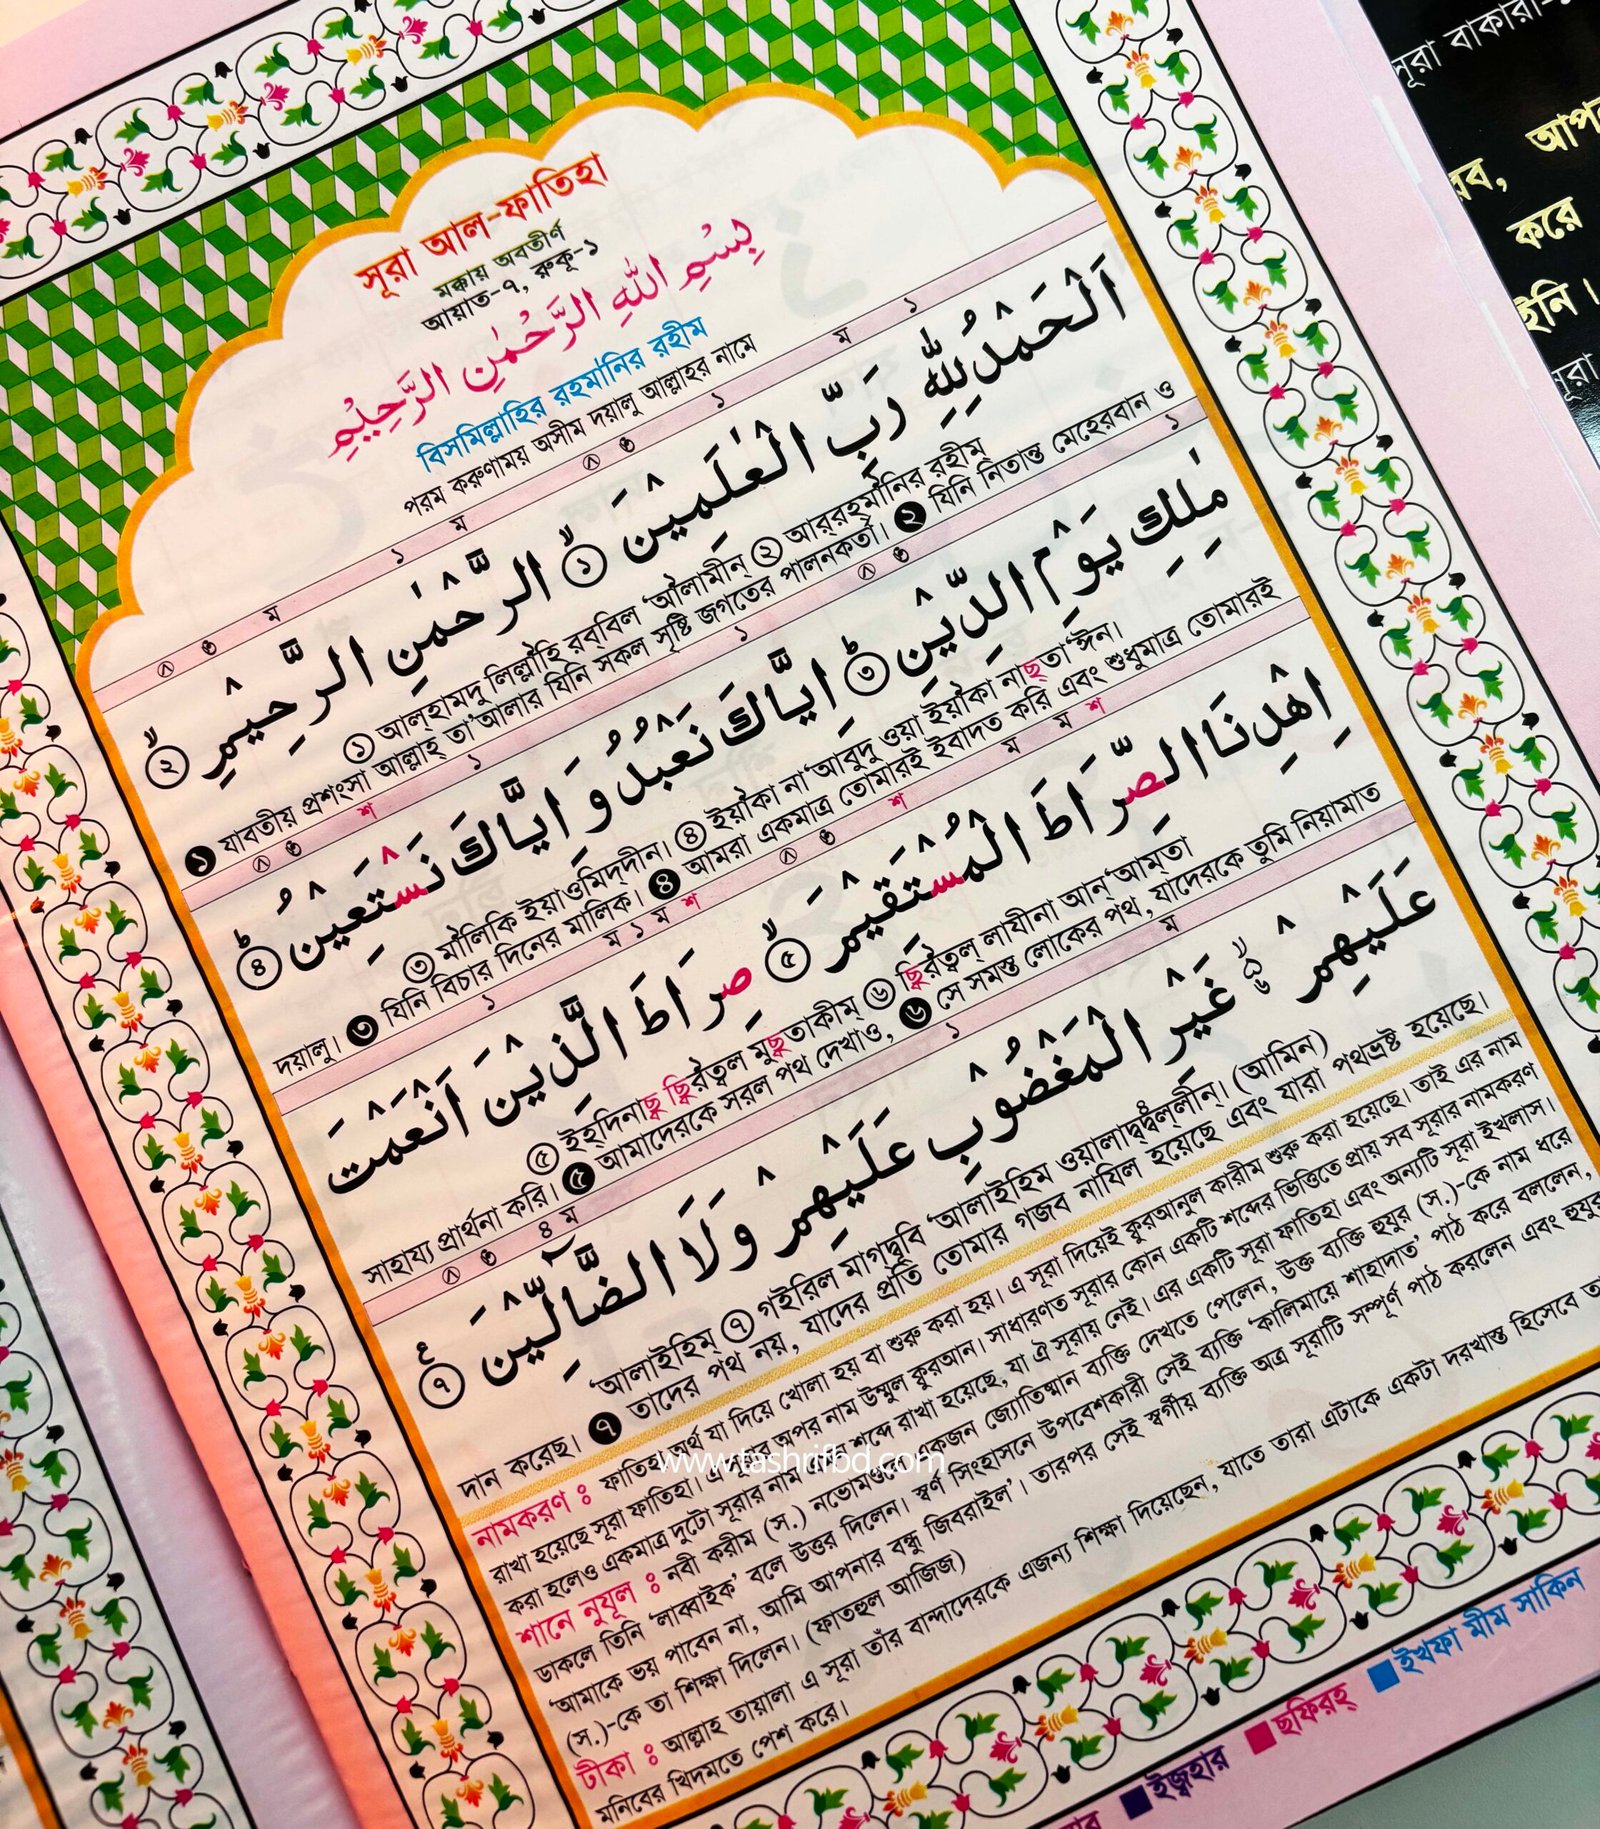 সূরা আল-ফাতিহা
মক্কায় অবতীর্ণ
আয়াত-৭, রুকূ-১
بِسْمِ اللّٰهِ الرَّحْمٰنِ الرَّحِيْمِ
বিসমিল্লাহির রহমানির রহীম
পরম করুণাময় অসীম দয়ালু আল্লাহর নামে
اَلْحَمْدُ لِلّٰهِ رَبِّ الْعٰلَمِيْنَ ۙ ১ الرَّحْمٰنِ الرَّحِيْمِ ۙ ২
১ আল্‌হামদু লিল্লাহি রব্‌বিল ‘আলামীন্‌ ২ আর্‌রহ্‌মানির রহীম্‌
১ যাবতীয় প্রশংসা আল্লাহ্‌ তা‘আলার যিনি সকল সৃষ্টি জগতের পালনকর্তা। ২ যিনি নিতান্ত মেহেরবান ও
مٰلِكِ يَوْمِ الدِّيْنِ ؕ ৩ اِيَّاكَ نَعْبُدُ وَ اِيَّاكَ نَسْتَعِيْنُ ؕ ৪
৩ মালিকি ইয়াওমিদ্‌দীন। ৪ ইয়্যাকা না‘আবুদু ওয়া ইয়্যাকা নাছ্‌তা‘ঈন।
দয়ালু। ৩ যিনি বিচার দিনের মালিক। ৪ আমরা একমাত্র তোমারই ইবাদত করি এবং শুধুমাত্র তোমারই
اِهْدِنَا الصِّرَاطَ الْمُسْتَقِيْمَ ۙ ৫ صِرَاطَ الَّذِيْنَ اَنْعَمْتَ
৫ ইহ্‌দিনাছ্‌ ছিরাত্বল মুছতাকীম্‌ ৬ ছিরাত্বল্‌ লাযীনা আন্‌‘আম্‌তা
সাহায্য প্রার্থনা করি। ৫ আমাদেরকে সরল পথ দেখাও, ৬ সে সমস্ত লোকের পথ, যাদেরকে তুমি নিয়ামাত
عَلَيْهِمْ ৬ غَيْرِ الْمَغْضُوْبِ عَلَيْهِمْ وَلَا الضَّآلِّيْنَ ৭
‘আলাইহিম্‌ ৭ গইরিল মাগদ্বুবি ‘আলাইহিম ওয়ালাদ্বদ্বল্‌লীন্‌। (আমিন)
দান করেছ। ৭ তাদের পথ নয়, যাদের প্রতি তোমার গজব নাযিল হয়েছে এবং যারা পথভ্রষ্ট হয়েছে।
নামকরণ ঃ ফাতিহা অর্থ যা দিয়ে খোলা হয় বা শুরু করা হয়। এ সূরা দিয়েই কুরআনুল কারীম শুরু করা হয়েছে। তাই এর নাম
রাখা হয়েছে সূরা ফাতিহা। এ সূরার অপর নাম উম্মুল কুরআন। সাধারণত সূরার কোন একটি শব্দের ভিত্তিতে প্রায় সব সূরার নামকরণ
করা হলেও একমাত্র দুটো সূরার নাম এমন শব্দে রাখা হয়েছে, যা ঐ সূরায় নেই। এর একটি সূরা ফাতিহা এবং অন্যটি সূরা ইখলাস।
শানে নুযূল ঃ নবী করীম (স.) নভোমণ্ডলে একজন জ্যোতিষ্মান ব্যক্তি দেখতে পেলেন, উক্ত ব্যক্তি হুযুর (স.)-কে নাম ধরে
ডাকলে তিনি ‘লাব্বাইক’ বলে উত্তর দিলেন। স্বর্ণ সিংহাসনে উপবেশকারী সেই ব্যক্তি ‘কালিমায়ে শাহাদাত’ পাঠ করে বললেন,
‘আমাকে ভয় পাবেন না, আমি আপনার বন্ধু জিবরাইল’। তারপর সেই স্বর্গীয় ব্যক্তি অত্র সূরাটি সম্পূর্ণ পাঠ করলেন এবং হুযুর
(স.)-কে তা শিক্ষা দিলেন। (ফাতহুল আজিজ)
টীকা ঃ আল্লাহ তায়ালা এ সূরা তাঁর বান্দাদেরকে এজন্য শিক্ষা দিয়েছেন, যাতে তারা এটাকে একটা দরখাস্ত হিসেবে
মনিবের খিদমতে পেশ করে।
www.tashrifbd.com
ইজ্বহার ছফিরহ্‌ ইখফা মীম সাকিন
সূরা বাকারা-
করে